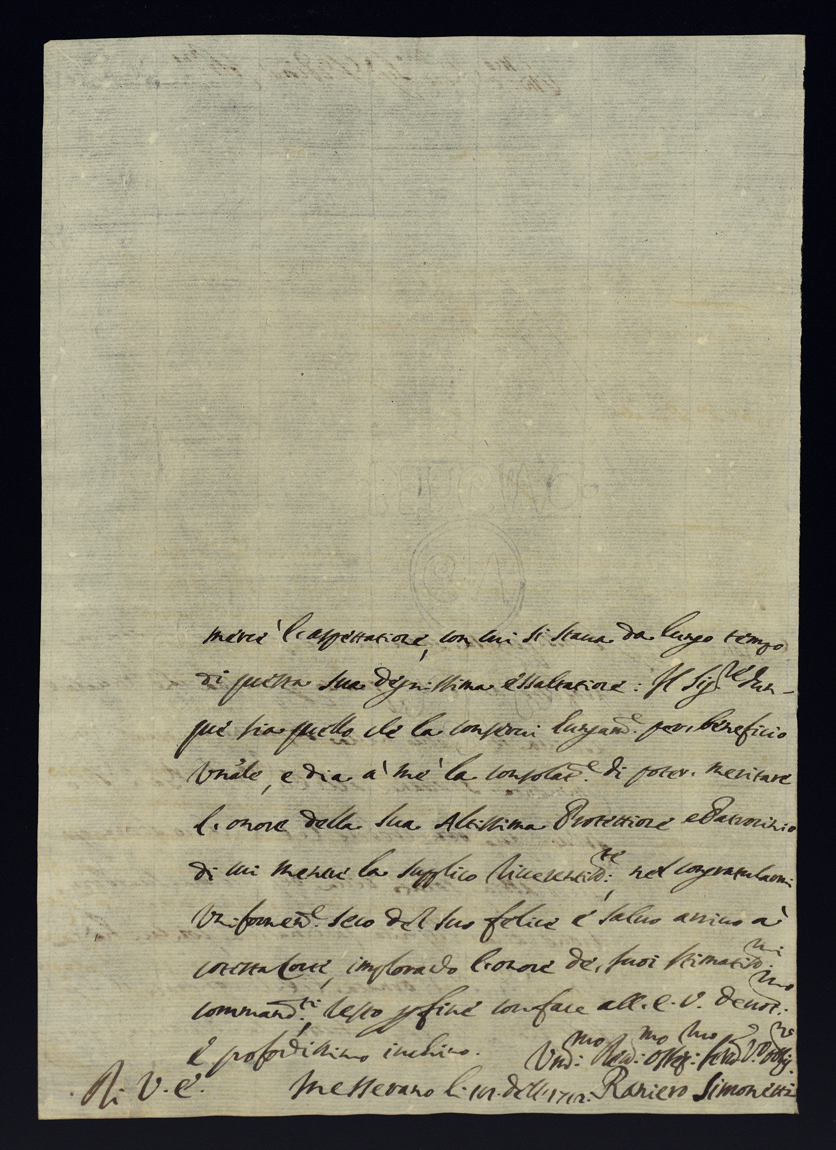 mercè l'aspettatione, con cui si staua da lungo tempo
di questa sua degnissima essaltatione: Il Sig.re dun-
que sia quello che la conserui lungam.e per beneficio
Vnã̃le, e dia à me la consolat.e di poter meritare
l'onore della sua Altissima Protettione e Patrocinio
di cui mentre la supplico
nel congratularmi
Vniformem.e seco del suo felice è saluo arriuo à
cotesta Corte, implorando l'onore de suoi stimatiss:mi
command:ti, resto p fine con fare all. E. V. deuot:mo
è profondissimo inchino.
Vmil:mo Deu:mo Osseq:mo Seru:
R. V. E.
Messerano li 10. dell. 1712. Raniero Simonetti